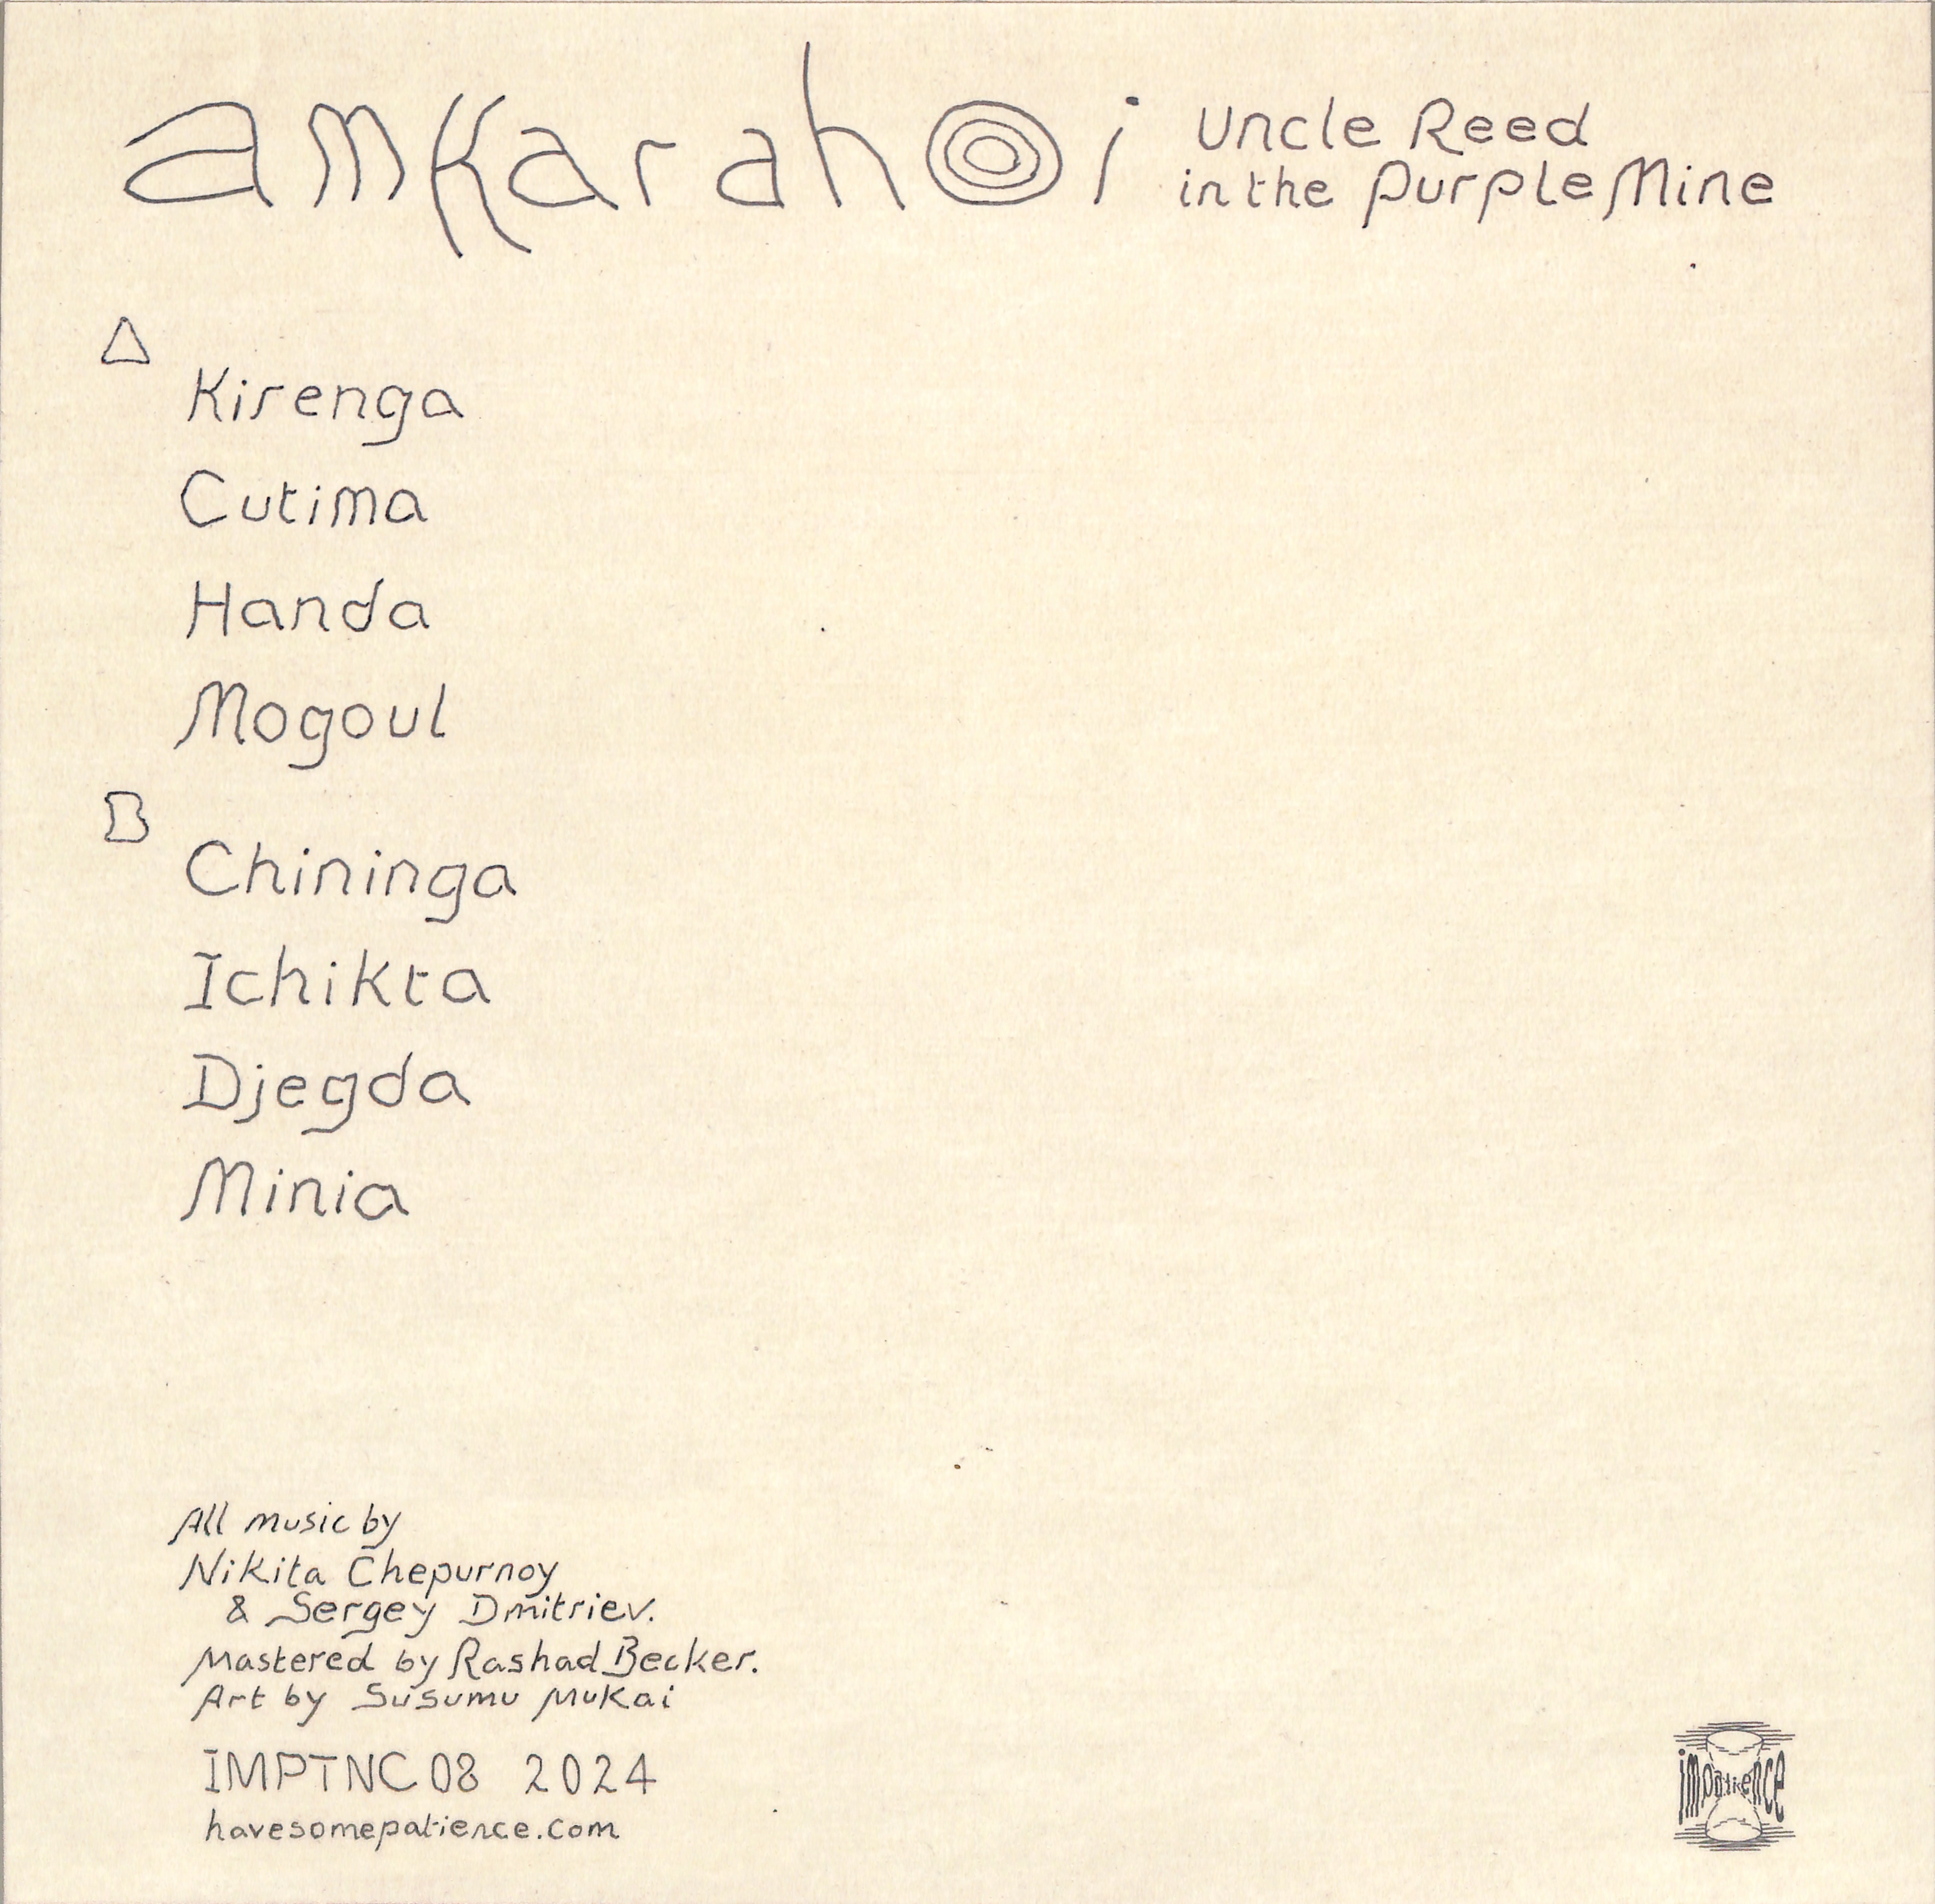 amkarahoi
Uncle Reed
in the Purple Mine
A
Kirenga
Cutima
Handa
Mogoul
B
Chininga
Ichikta
Djegda
Minia
All music by
Nikita Chepurnoy
& Sergey Dmitriev.
Mastered by Rashad Becker.
Art by Susumu Mukai
IMPTNC 08 2024
havesomepatience.com
impatience